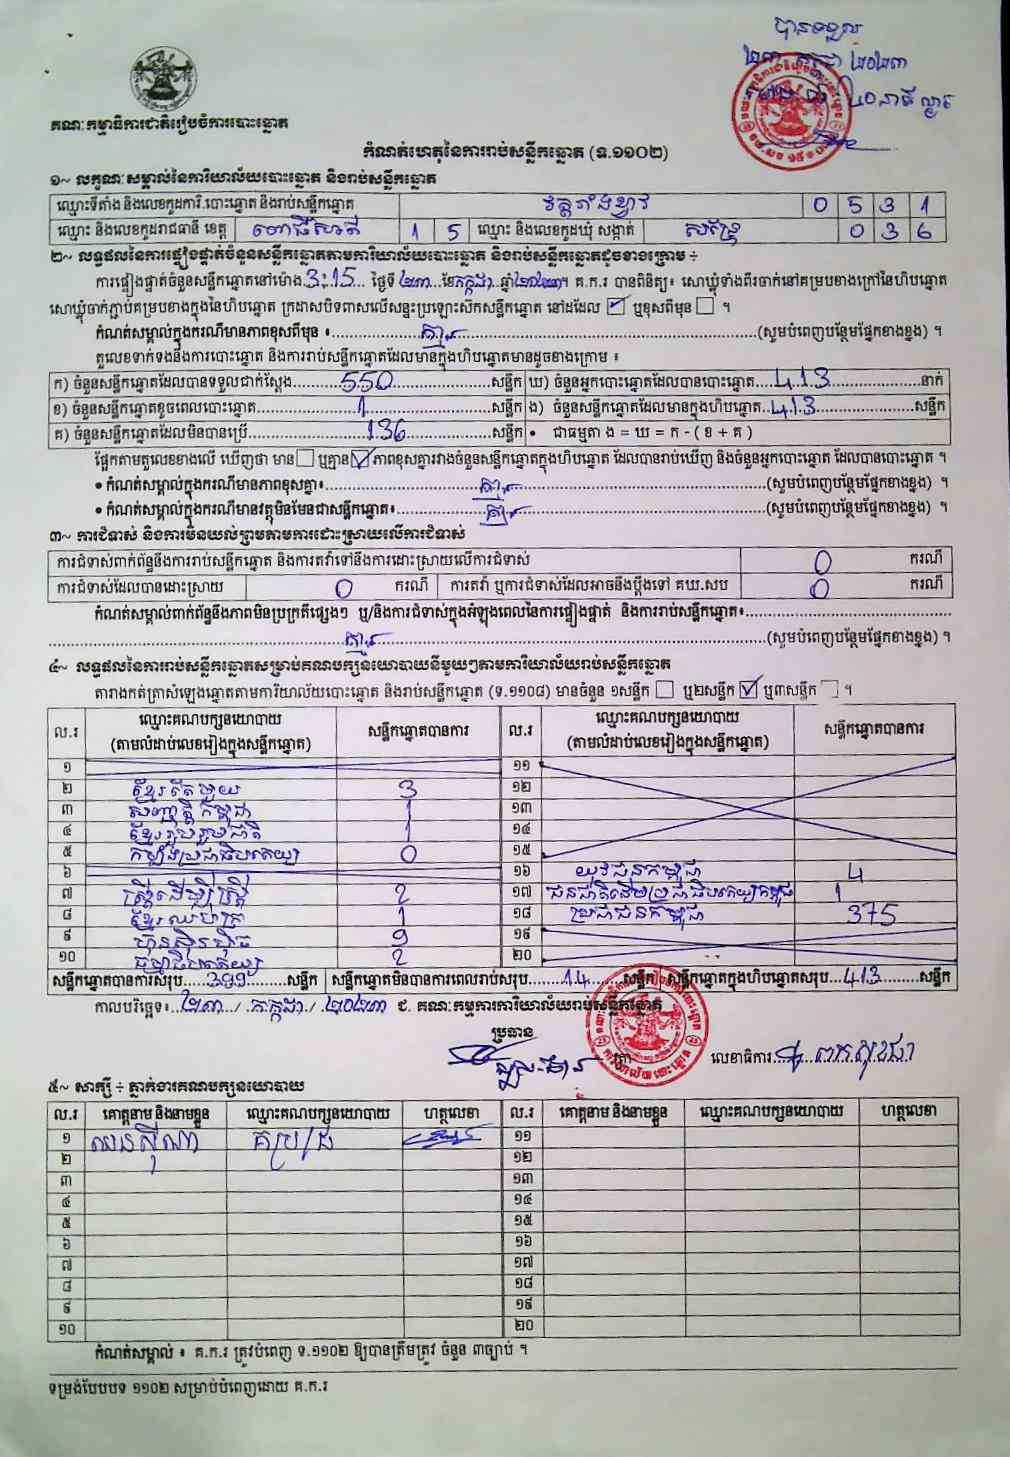 បានទទួល
២៣ កក្កដា ២០២៣
គណៈកម្មាធិការជាតិរៀបចំការបោះឆ្នោត
កំណត់ហេតុនៃការរាប់សន្លឹកឆ្នោត (ទ.១១០២)
១~ លក្ខណៈសម្គាល់នៃការិយាល័យបោះឆ្នោត និងរាប់សន្លឹកឆ្នោត
ឈ្មោះទីតាំង និងលេខកូដការិ.បោះឆ្នោត និងរាប់សន្លឹកឆ្នោត 0 5 3 1
ឈ្មោះ និងលេខកូដរាជធានី ខេត្ត ពោធិ៍សាត់ 1 5 ឈ្មោះ និងលេខកូដឃុំ សង្កាត់ 0 3 6
២~ លទ្ធផលនៃការផ្ទៀងផ្ទាត់ចំនួនសន្លឹកឆ្នោតតាមការិយាល័យបោះឆ្នោត និងរាប់សន្លឹកឆ្នោតដូចខាងក្រោម ÷
ការផ្ទៀងផ្ទាត់ចំនួនសន្លឹកឆ្នោតនៅម៉ោង 3:15 ថ្ងៃទី ២៣ ខែ កក្កដា ឆ្នាំ ២០២៣។ គ.ក.រ បានពិនិត្យ៖ សោឃ្លុំទាំងពីរចាក់នៅគម្របខាងក្រៅនៃហិបឆ្នោត
សោឃ្លុំចាក់ភ្ជាប់គម្របខាងក្នុងនៃហិបឆ្នោត ក្រដាសបិទពាសលើសន្ទះប្រឡោះសិកសន្លឹកឆ្នោត នៅដដែល ☑ ឬខុសពីមុន ☐ ។
កំណត់សម្គាល់ក្នុងករណីមានភាពខុសពីមុន ៖ គ្មាន (សូមបំពេញបន្ថែមផ្នែកខាងខ្នង) ។
តួលេខទាក់ទងនឹងការបោះឆ្នោត និងការរាប់សន្លឹកឆ្នោតដែលមានក្នុងហិបឆ្នោតមានដូចខាងក្រោម ៖
ក) ចំនួនសន្លឹកឆ្នោតដែលបានទទួលជាក់ស្តែង 550 សន្លឹក ឃ) ចំនួនអ្នកបោះឆ្នោតដែលបានបោះឆ្នោត 413 នាក់
ខ) ចំនួនសន្លឹកឆ្នោតខូចពេលបោះឆ្នោត 1 សន្លឹក ង) ចំនួនសន្លឹកឆ្នោតដែលមានក្នុងហិបឆ្នោត 413 សន្លឹក
គ) ចំនួនសន្លឹកឆ្នោតដែលមិនបានប្រើ 136 សន្លឹក • ជាធម្មតា ង = ឃ = ក - ( ខ + គ )
ផ្អែកតាមតួលេខខាងលើ ឃើញថា មាន ☐ ឬគ្មាន ☑ ភាពខុសគ្នារវាងចំនួនសន្លឹកឆ្នោតក្នុងហិបឆ្នោត ដែលបានរាប់ឃើញ និងចំនួនអ្នកបោះឆ្នោត ដែលបានបោះឆ្នោត ។
• កំណត់សម្គាល់ក្នុងករណីមានភាពខុសគ្នា៖ គ្មាន (សូមបំពេញបន្ថែមផ្នែកខាងខ្នង) ។
• កំណត់សម្គាល់ក្នុងករណីមានវត្ថុមិនមែនជាសន្លឹកឆ្នោត៖ គ្មាន (សូមបំពេញបន្ថែមផ្នែកខាងខ្នង) ។
៣~ ការជំទាស់ និងការមិនយល់ព្រមតាមការដោះស្រាយលើការជំទាស់
ការជំទាស់ពាក់ព័ន្ធនឹងការរាប់សន្លឹកឆ្នោត និងការតវ៉ាទៅនឹងការដោះស្រាយលើការជំទាស់ 0 ករណី
ការជំទាស់ដែលបានដោះស្រាយ 0 ករណី ការតវ៉ា ឬការជំទាស់ដែលអាចនឹងប្តឹងទៅ គឃ.សប 0 ករណី
កំណត់សម្គាល់ពាក់ព័ន្ធនឹងភាពមិនប្រក្រតីផ្សេងៗ ឬ/និងការជំទាស់ក្នុងអំឡុងពេលនៃការផ្ទៀងផ្ទាត់ និងការរាប់សន្លឹកឆ្នោត៖
គ្មាន (សូមបំពេញបន្ថែមផ្នែកខាងខ្នង) ។
៤~ លទ្ធផលនៃការរាប់សន្លឹកឆ្នោតសម្រាប់គណបក្សនយោបាយនីមួយៗតាមការិយាល័យរាប់សន្លឹកឆ្នោត
តារាងកត់ត្រាសំឡេងឆ្នោតតាមការិយាល័យបោះឆ្នោត និងរាប់សន្លឹកឆ្នោត (ទ.១១០៨) មានចំនួន ១សន្លឹក ☐ ឬ២សន្លឹក ☑ ឬ៣សន្លឹក ☐ ។
ល.រ ឈ្មោះគណបក្សនយោបាយ (តាមលំដាប់លេខរៀងក្នុងសន្លឹកឆ្នោត) សន្លឹកឆ្នោតបានការ ល.រ ឈ្មោះគណបក្សនយោបាយ (តាមលំដាប់លេខរៀងក្នុងសន្លឹកឆ្នោត) សន្លឹកឆ្នោតបានការ
១ ១១
២ ខ្មែរតែមួយ 3 ១២
៣ សញ្ជាតិកម្ពុជា 1 ១៣
៤ ខ្មែររួបរួមជាតិ 1 ១៤
៥ កម្លាំងប្រជាធិបតេយ្យ 0 ១៥
៦ ១៦ យុវជនកម្ពុជា 4
៧ ស្ត្រីដើម្បីស្ត្រី 2 ១៧ ជនជាតិដើមប្រជាធិបតេយ្យកម្ពុជា 1
៨ ខ្មែរឈប់ក្រ 1 ១៨ ប្រជាជនកម្ពុជា 375
៩ ហ៊្វុនស៊ិនប៉ិច 9 ១៩
១០ ធម្មាធិបតេយ្យ 2 ២០
សន្លឹកឆ្នោតបានការសរុប 399 សន្លឹក សន្លឹកឆ្នោតមិនបានការពេលរាប់សរុប 14 សន្លឹក សន្លឹកឆ្នោតក្នុងហិបឆ្នោតសរុប 413 សន្លឹក
កាលបរិច្ឆេទ៖ ២៣ / កក្កដា / ២០២៣ ជ. គណៈកម្មការការិយាល័យរាប់សន្លឹកឆ្នោត
ប្រធាន
ត្រា លេខាធិការ
៥~ សាក្សី ÷ ភ្នាក់ងារគណបក្សនយោបាយ
ល.រ គោត្តនាម និងនាមខ្លួន ឈ្មោះគណបក្សនយោបាយ ហត្ថលេខា ល.រ គោត្តនាម និងនាមខ្លួន ឈ្មោះគណបក្សនយោបាយ ហត្ថលេខា
១ ១១
២ ១២
៣ ១៣
៤ ១៤
៥ ១៥
៦ ១៦
៧ ១៧
៨ ១៨
៩ ១៩
១០ ២០
កំណត់សម្គាល់ ៖ គ.ក.រ ត្រូវបំពេញ ទ.១១០២ ឱ្យបានត្រឹមត្រូវ ចំនួន ៣ច្បាប់ ។
ទម្រង់បែបបទ ១១០២ សម្រាប់បំពេញដោយ គ.ក.រ